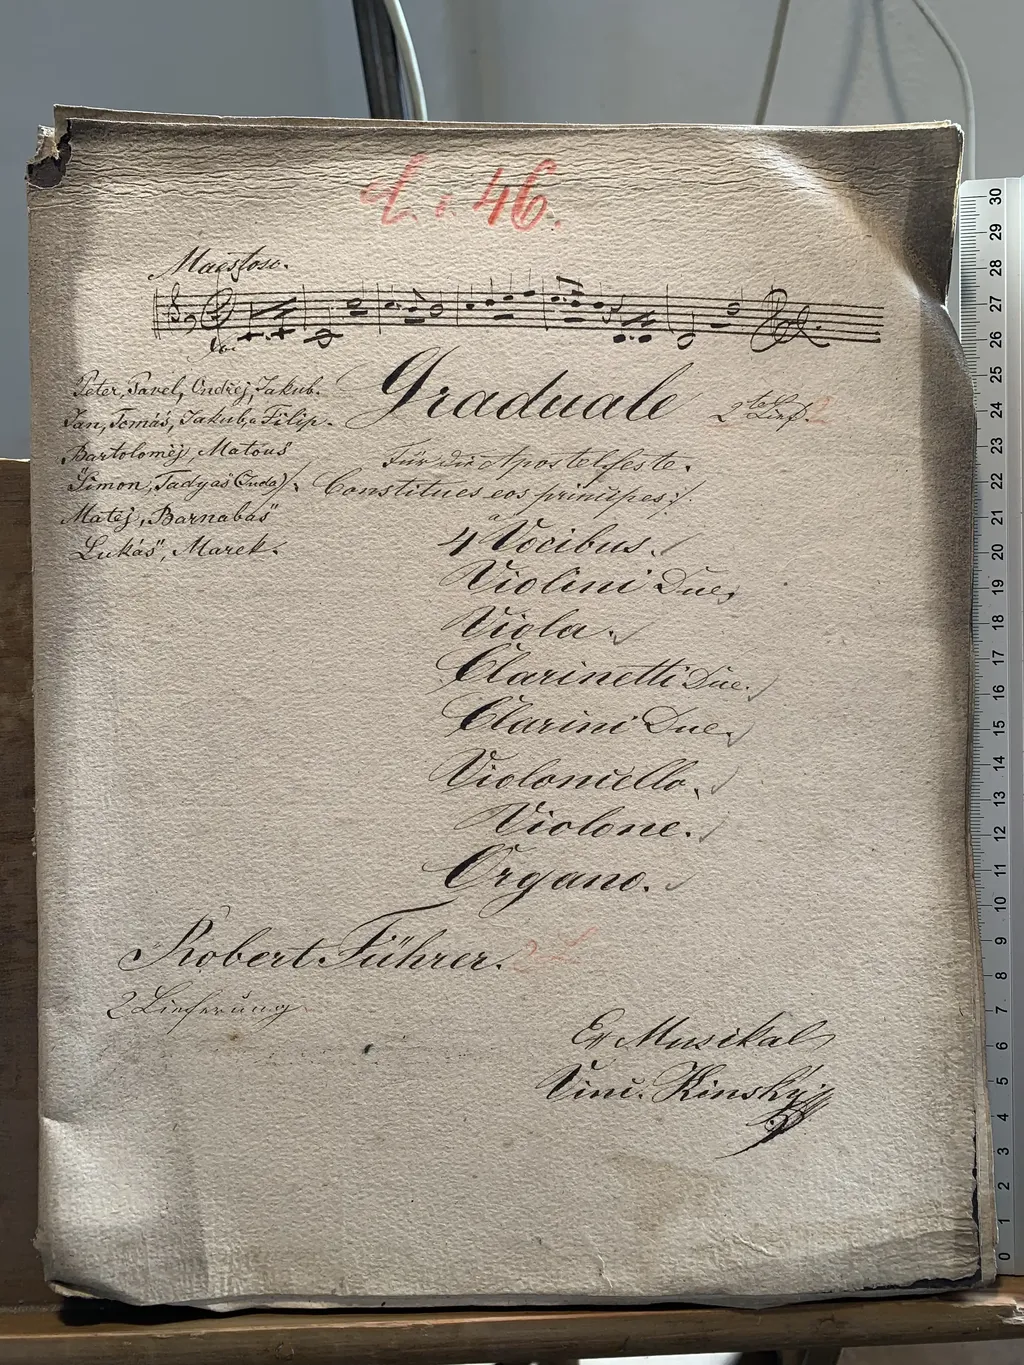 č. 46.
Maestoso.
Graduale 2te Lief.
Für die Apostelfeste.
Constitues eos principes
Peter, Pavel, Ondřej, Jakub.
Jan, Tomáš, Jakub, Filip.
Bartoloměj Matouš
Šimon, Tadyáš (Juda)
Matěj, Barnabáš
Lukáš, Marek.
4 Vocibus.
Violini Due.
Viola.
Clarinetti Due.
Clarini Due.
Violoncello.
Violone.
Organo.
Robert Führer.
2 Lieferung
Ex Musikal
Vinc. Kinský
30
29
28
27
26
25
24
23
22
21
20
19
18
17
16
15
14
13
12
11
10
9
8
7
6
5
4
3
2
1
0